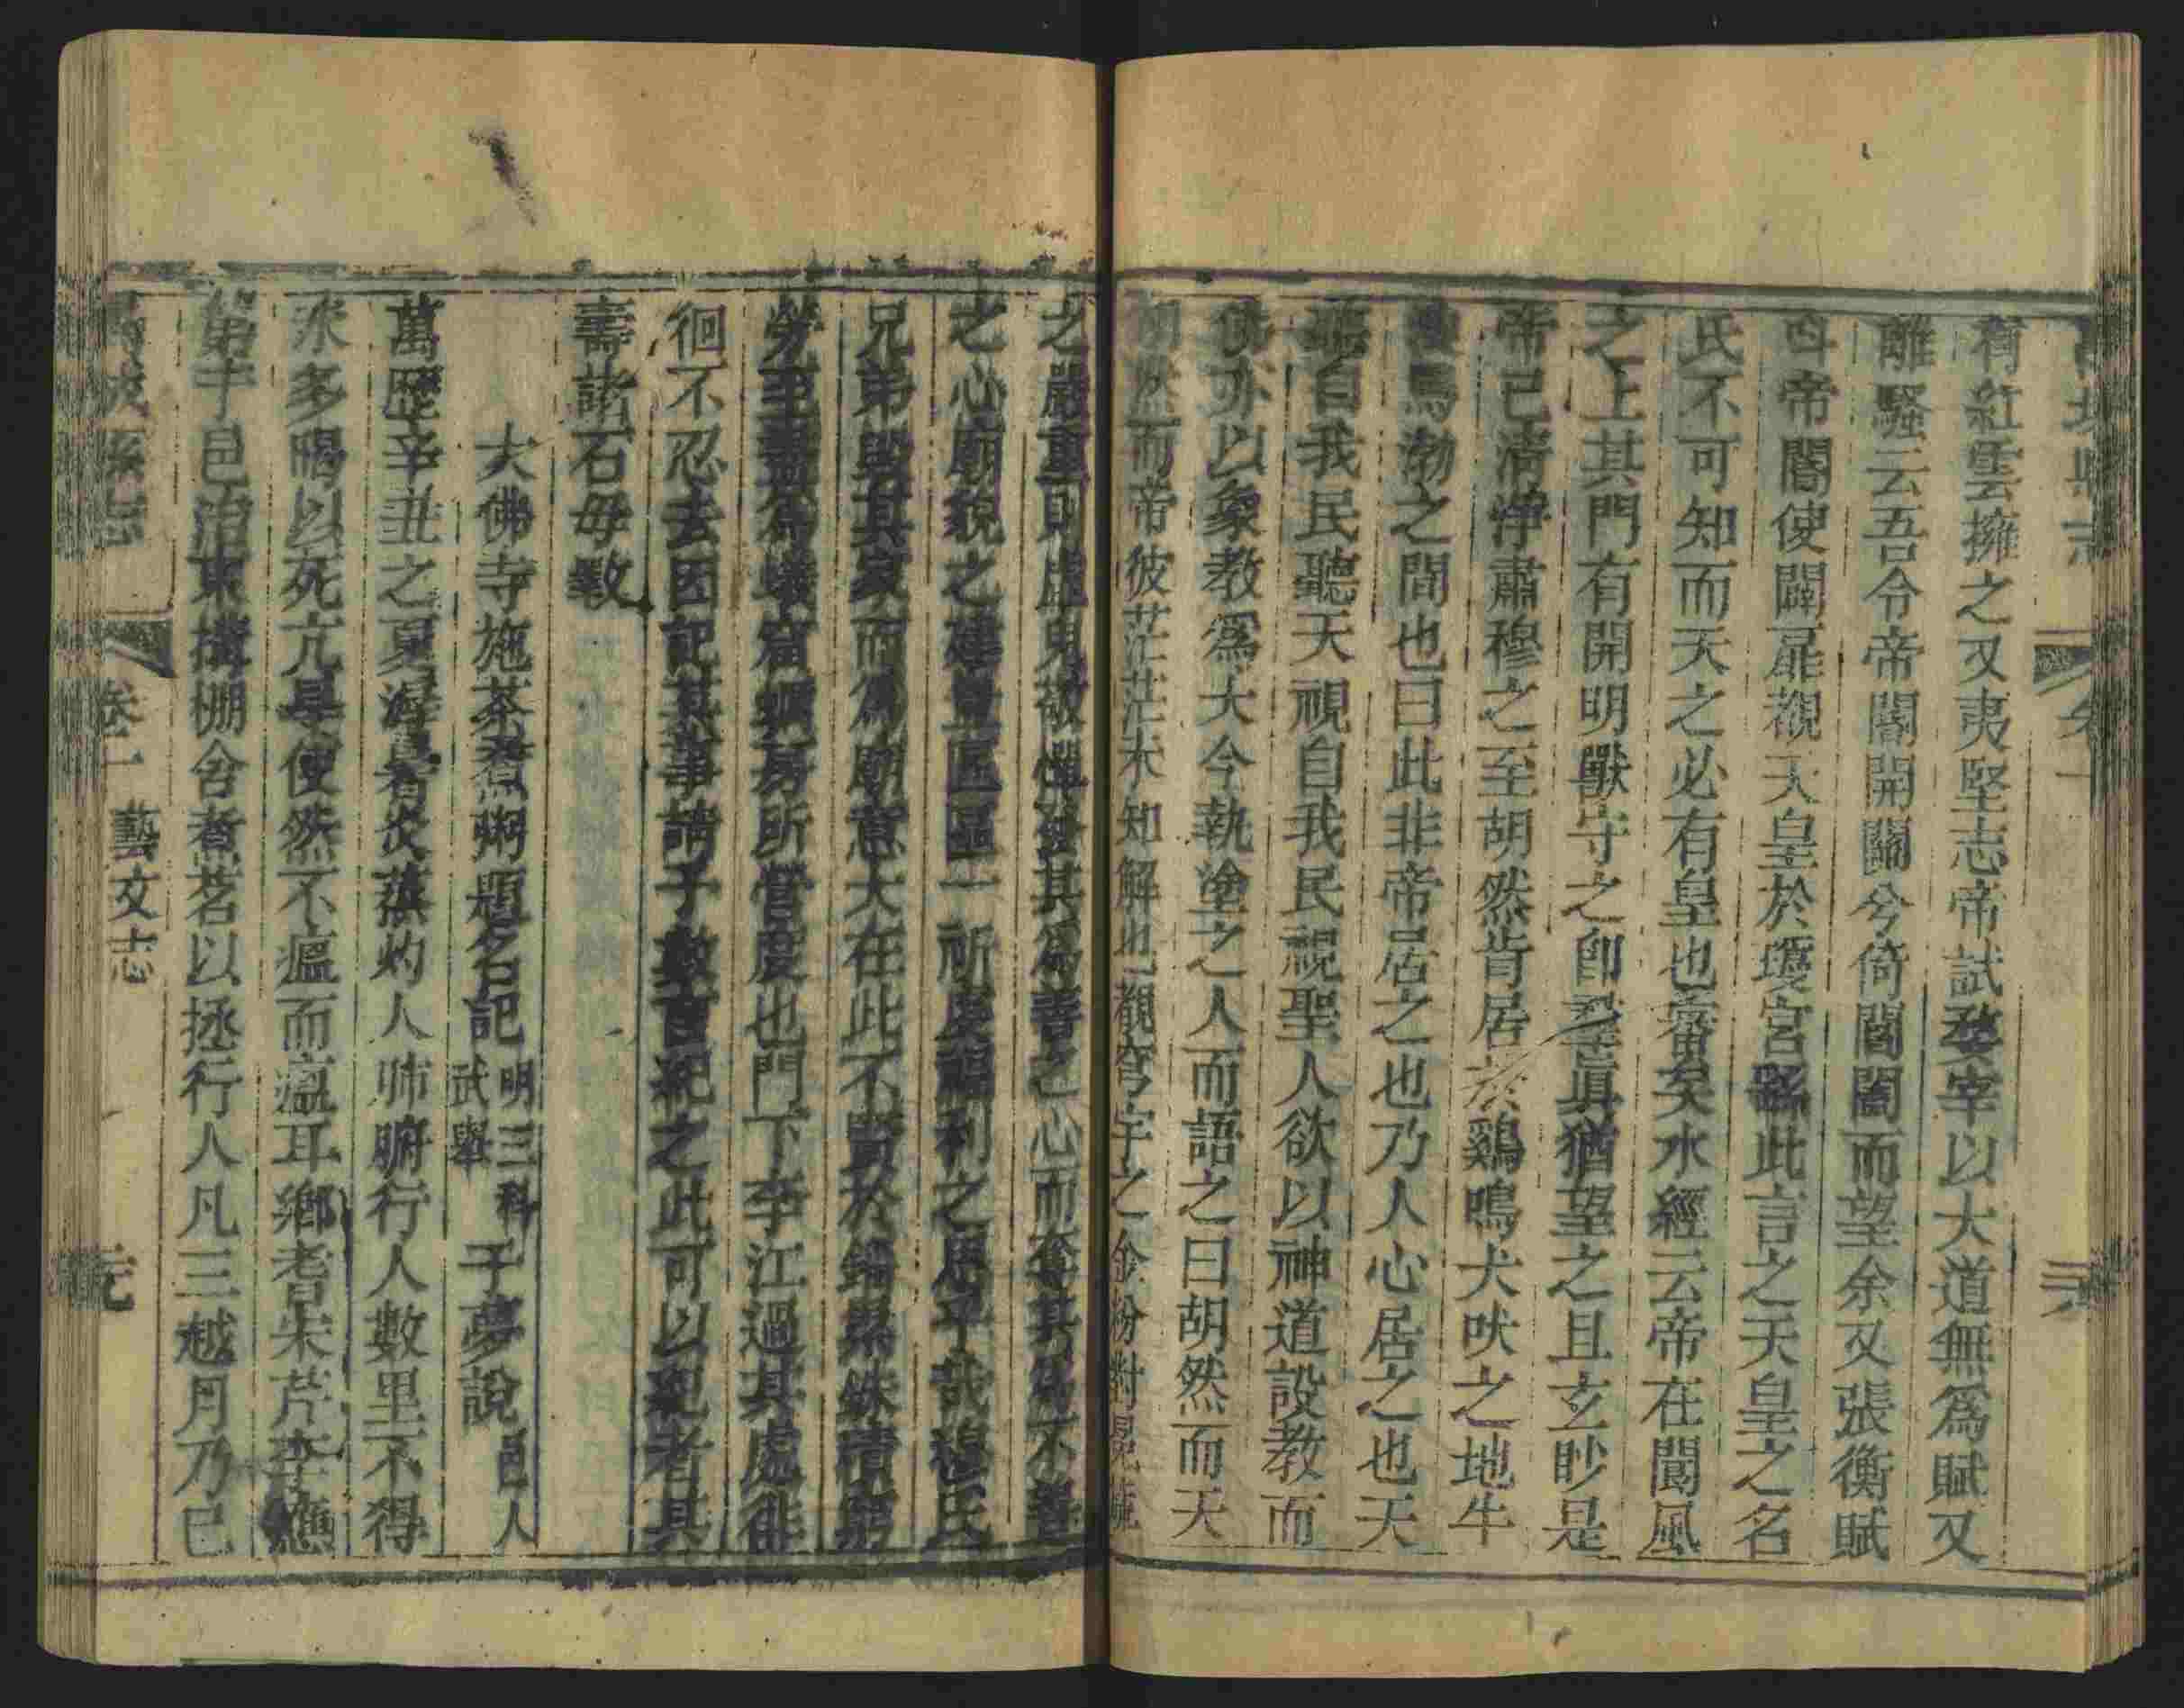 有紅雲擁之又夷堅志帝試婺宰以大道無為賦又
離騷云吾令帝閽開關兮倚閶闔而望余又張衡賦
帝閽使闢扉覿天皇於瓊宮繇此言之天皇之名
氏不可知而天之必有皇也審矣水經云帝在閬風
之上其門有開明獸守之即鑿真猶望之且玄眇是
帝已清淨肅穆之至胡然肯居於鷄鳴犬吠之地牛
馬勃之間也曰此非帝居之也乃人心居之也天
聽自我民聽天視自我民視聖人欲以神道設教而
佛亦以象教為大今執塗之人而語之曰胡然而天
胡然而帝彼茫茫未知解也觀穹宇之金紛對晃
之嚴重則虔鬼敬憚發其為善之心而奪其為不善
之心廟貌之建豈區區一祈虔福利之思乎哉穆氏
兄弟毀其家而為廟意大在此不啻於錙累銖積窮
勞至盡為蟻窩蜩房所營度也門下李江過其處徘
徊不忍去因記其事請予數百祀之此可以觀者其
壽諸石毋斁
大佛寺施茶煮粥題名記 明三科武舉 于夢說 邑人
萬歷辛丑之夏溽暑炎蒸灼人肺腑行人數里不得
水多暍以死亢旱使然不瘟而瘟耳鄉耆朱芹李應
第于邑治東搆棚舍煮茗以拯行人凡三越月乃已
縣志 卷一 藝文志 元